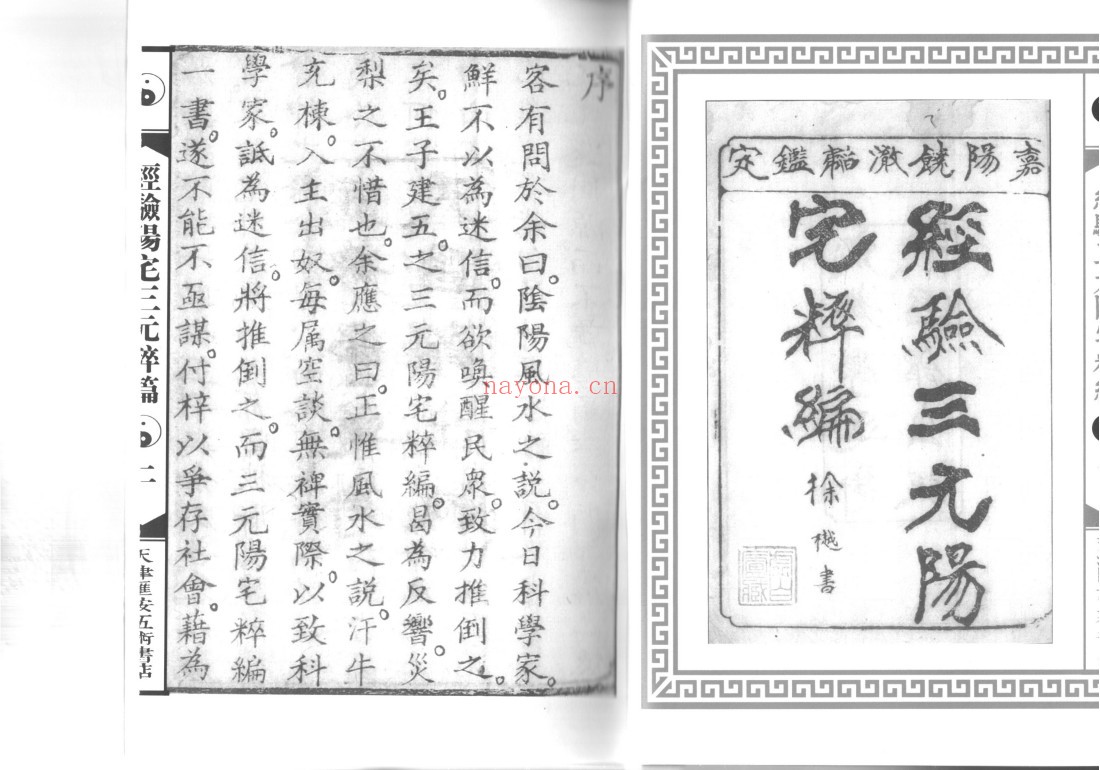 嘉陽饒澂嵇鑑定
經驗三元陽
宅粹編
徐樾書
序
客有問於余曰。陰陽風水之說。今日科學家。
鮮不以為迷信。而欲喚醒民眾。致力推倒之。
矣。王子建五。之三元陽宅粹編。曷為反響。災
梨之不惜也。余應之曰。正惟風水之說。汗牛
充棟。入主出奴。每属空談。無裨實際。以致科
學家。詆為迷信。將推倒之。而三元陽宅粹編
一書。遂不能不亟謀。付梓以爭存社會。藉為
經驗陽宅三元粹篇
天津匯安五術書店
nayona.cn